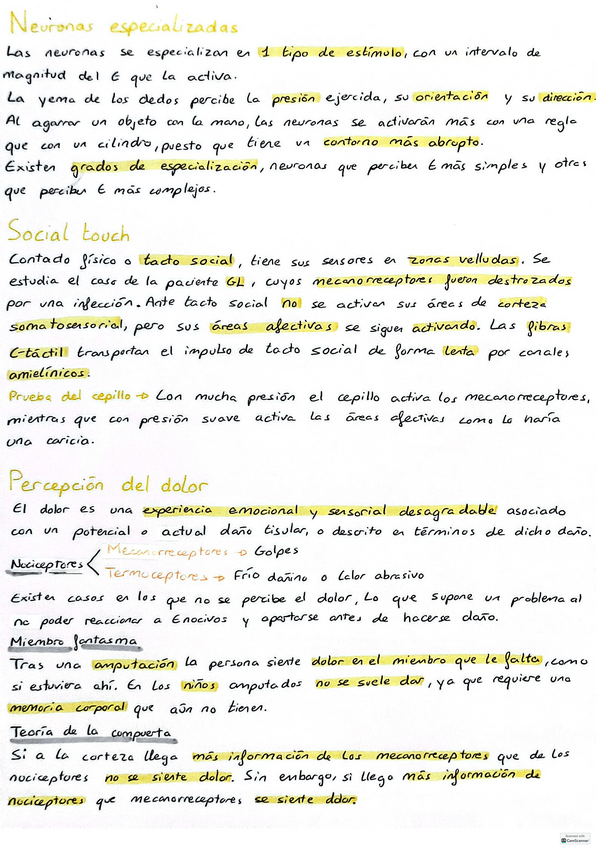 Neuronas especializadas
Las neuronas se especializan en 1 tipo de estímulo, con un intervalo de
magnitud del E que la activa.
La yema de los dedos percibe la presión ejercida, su orientación y su dirección.
Al agarrar un objeto con la mano, las neuronas se activarán más con una regla
que con un cilindro, puesto que tiene un contorno más abrupto.
Existen grados de especialización, neuronas que perciben E más simples y otras
que perciben E más complejos.
Social touch
Contado físico o tacto social, tiene sus sensores en zonas velludas. Se
estudia el caso de la paciente GL, cuyos mecanorreceptores fueron destrozados
por una infección. Ante tacto social no se activan sus áreas de corteza
somatosensorial, pero sus áreas afectivas se siguen activando. Las fibras
C-táctil transportan el impulso de tacto social de forma lenta por canales
amielínicos.
Prueba del cepillo → Con mucha presión el cepillo activa los mecanorreceptores,
mientras que con presión suave activa las áreas afectivas como lo haría
una caricia.
Percepción del dolor
El dolor es una experiencia emocional y sensorial desagradable asociado
con un potencial o actual daño tisular, o descrito en términos de dicho daño.
Mecanorreceptores → Golpes
Nociceptores <
Termoceptores → Frío dañino o Calor abrasivo
Existen casos en los que no se percibe el dolor, Lo que supone un problema al
no poder reaccionar a E nocivos y apartarse antes de hacerse daño.
Miembro fantasma
Tras una amputación la persona siente dolor en el miembro que le falta, como
si estuviera ahí. En los niños amputados no se suele dar, ya que requiere una
memoria corporal que aún no tienen.
Teoría de la compuerta
Si a la corteza llega más información de los mecanorreceptores que de los
nociceptores no se siente dolor. Sin embargo, si llega más información de
nociceptores que mecanorreceptores se siente dolor.
Scanned with
CamScanner